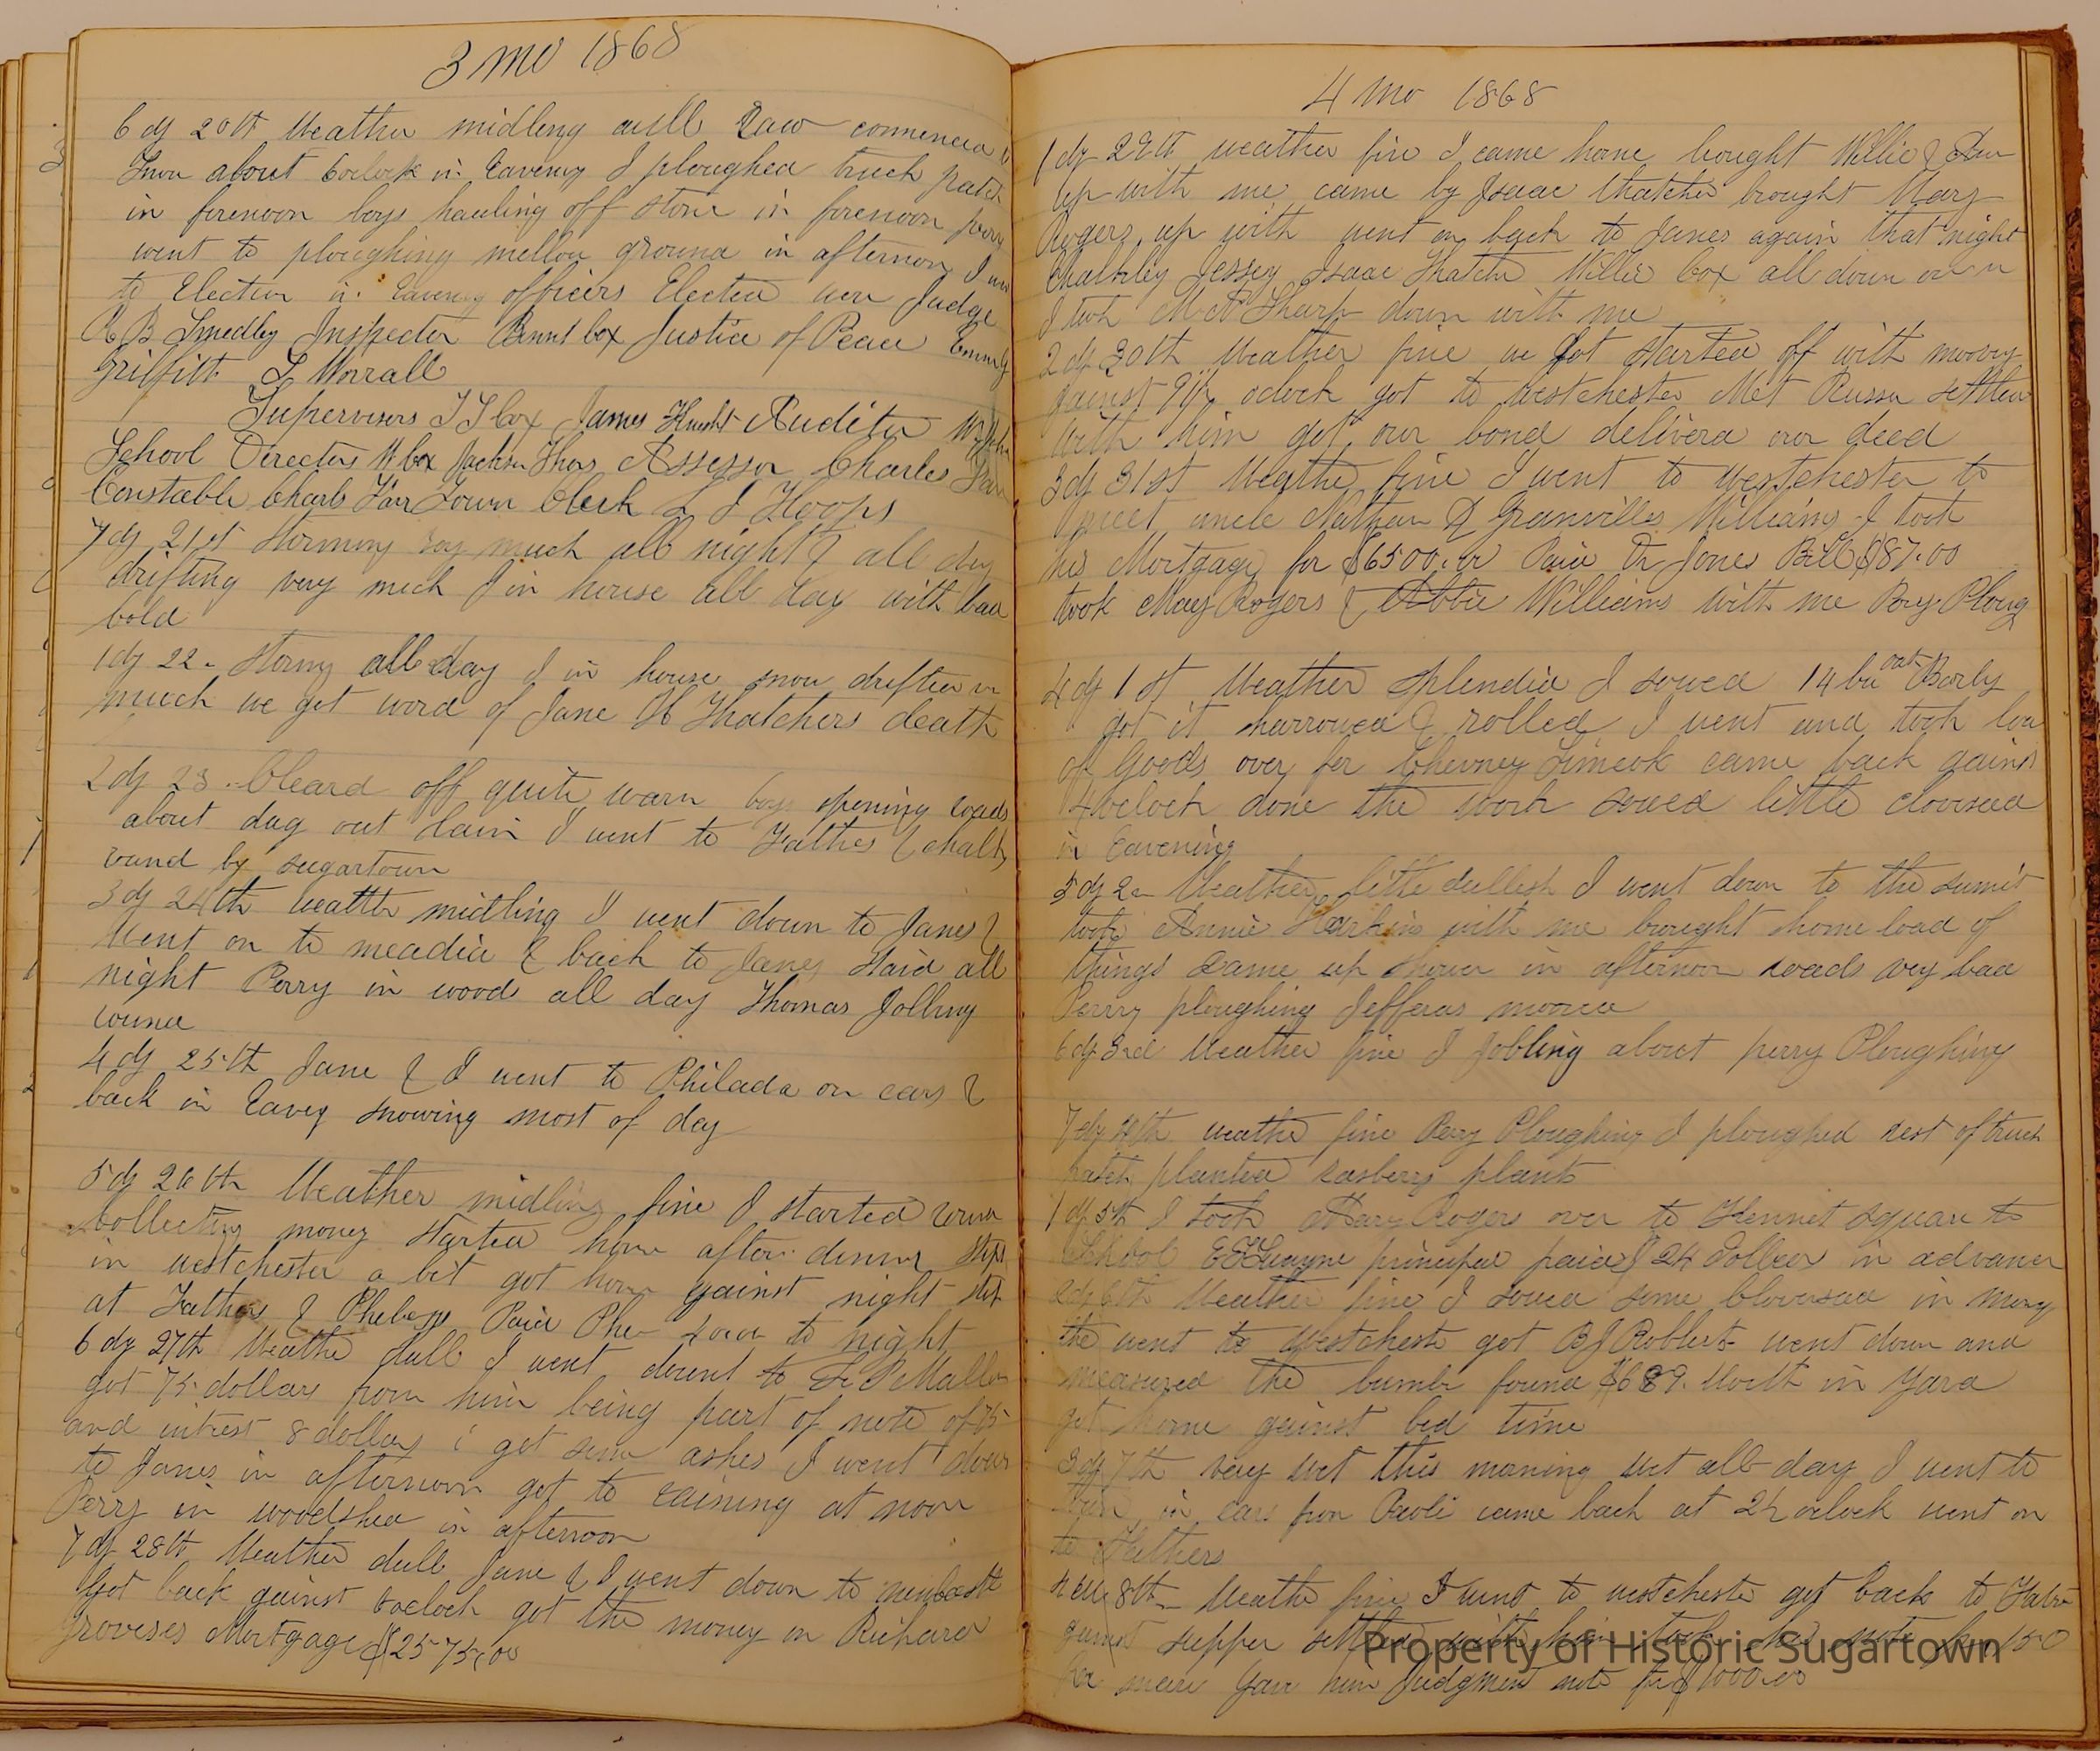 3 mo 1868
6 dy 20th Weather midling cull Raw commencea
Snow about 6 oclock in Eavening I ploughed truck patch
in forenoon boys hauling off stone in forenoon perry
went to ploughing mellow ground in afternoon I
to Election in Eavening officers Elected Judge
R B Smedley Inspecter Bennt Cox Justice of Peace Emmly
Griffith L Worrall
Supervisors T T Cox James Auditor
School Directors W Cox Jackson Thos Assessor Charles
Constable Charls Farr Town Clerk L J Hoops
7 dy 21st Stormy very much all night & all day
drifting very much I in house all day with bad
Cold
1 dy 22 Stormy all day I in house snow drifted
much we got word of Jane H Thatchers death
2 dy 23 Cleard off quite warm boys opening roads
about dug out lain I went to Fathers & Chalk
round by sugartown
3 dy 24th weather midling I went down to Janes &
Went on to meadia & back to Janes Staid all
night Perry in woods all day Thomas Jobbing
round
4 dy 25th Jane & I went to Philada on cars &
back in Eaveg snowing most of day
5 dy 26th Weather midling fine I started
Collecting money started home after dinner stopt
in westchester a bit got home against night stopt
at Fathers & Phebes Paid Phe to night
6 dy 27th Weathe dull I went
got 75 dollars from him being part of note of 75
and intrest 8 dollars got some ashes I went down
to Janes in afternoon got to raining at noon
Perry in woodshed in afternoon
7 dy 28th Weather dull Jane & I went down to
Got back gainst 6 oclock got the money on Richard
Groveses Mortgage $2575.00
4 mo 1868
1 dy 29th weather fine I came home bought Willie &
up with me came by Isaac Thatcher brought Mary
Rogers up with went on back to Janes again that night
Chalkley Jessey Isaac Thatcher Willie Cox all down
I took Sharp down with me
2 dy 30th Weather fine we got started off with
gainst oclock got to westchester Met settled
With him got our bond deliverd our deed
3 dy 31st Weathe fine I went to westchester to
meet uncle Nathan & Granville Williams I took
his Mortgage for $6500.00 Paid Dr Jones Bill $87.00
took Mary Rogers & Abbie Williams with me Perry Ploug
4 dy 1st Weather splendid I sowed 14 bu oat Barly
got it harrowed & rolled I went and took loa
of Goods over for Chevney came back gainst
4 oclock done the work sowed little cloverseed
in Eavening
5 dy 2 Weather little dullish I went down to the sumit
took Annie Harkins with me brought home load of
things came up shower in afternoon roads very bad
Perry ploughing Jefferas
6 dy 3rd Weather fine I Jobbing about perry Ploughing
7 dy 4th weathe fine Perry Ploughing I ploughed rest of truck
patch planted rasberry plants
1 dy 5th I took Mary Rogers over to Kennet Square to
School principal paid $24 dollars in advance
2 dy 6th Weather fine I sowed some Cloverseed in morng
the went to Westcheste got B J Robberts went down and
measured the lumbr found $689. Worth in Yard
got home gainst bed time
3 dy 7th very wet this morning wet all day I went to
town in cars from Paoli came back at 2½ oclock went on
to Fathers
8th Weathe fine I went to westchester got back to
gainst supper settled with him took his note for 150
Gave him Judgment note for $1000.00
Property of Historic Sugartown